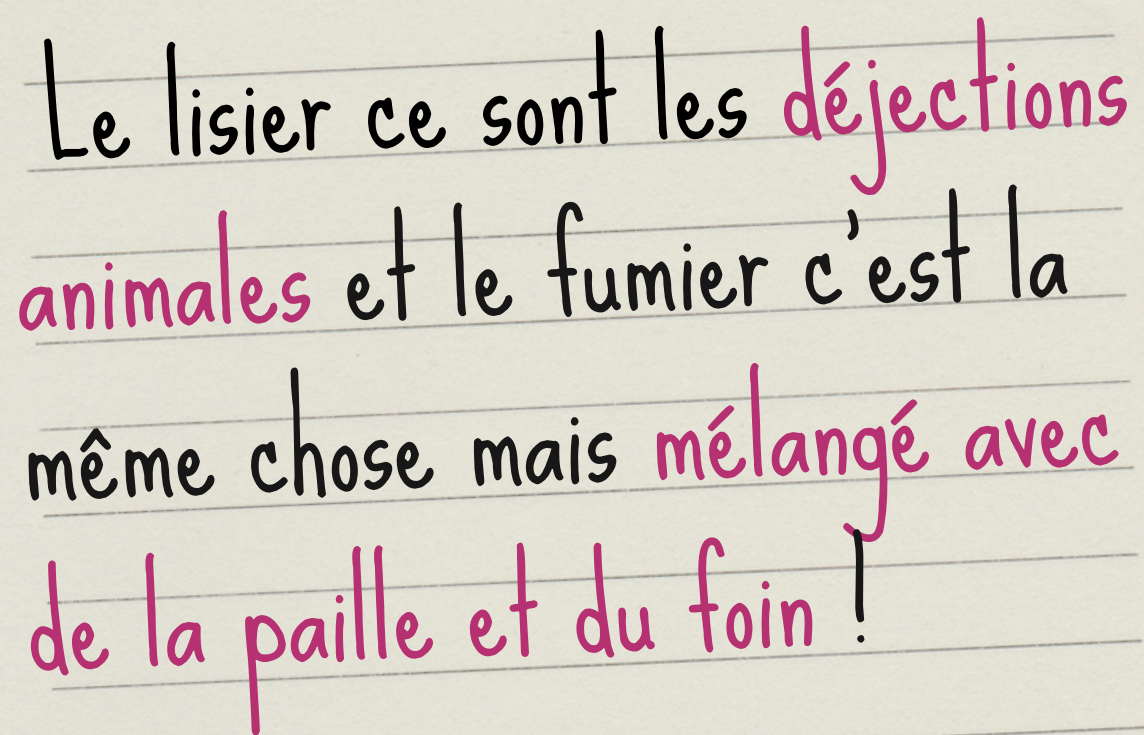 Le lisier ce sont les déjections
animales et le fumier c'est la
même chose mais mélangé avec
de la paille et du foin !